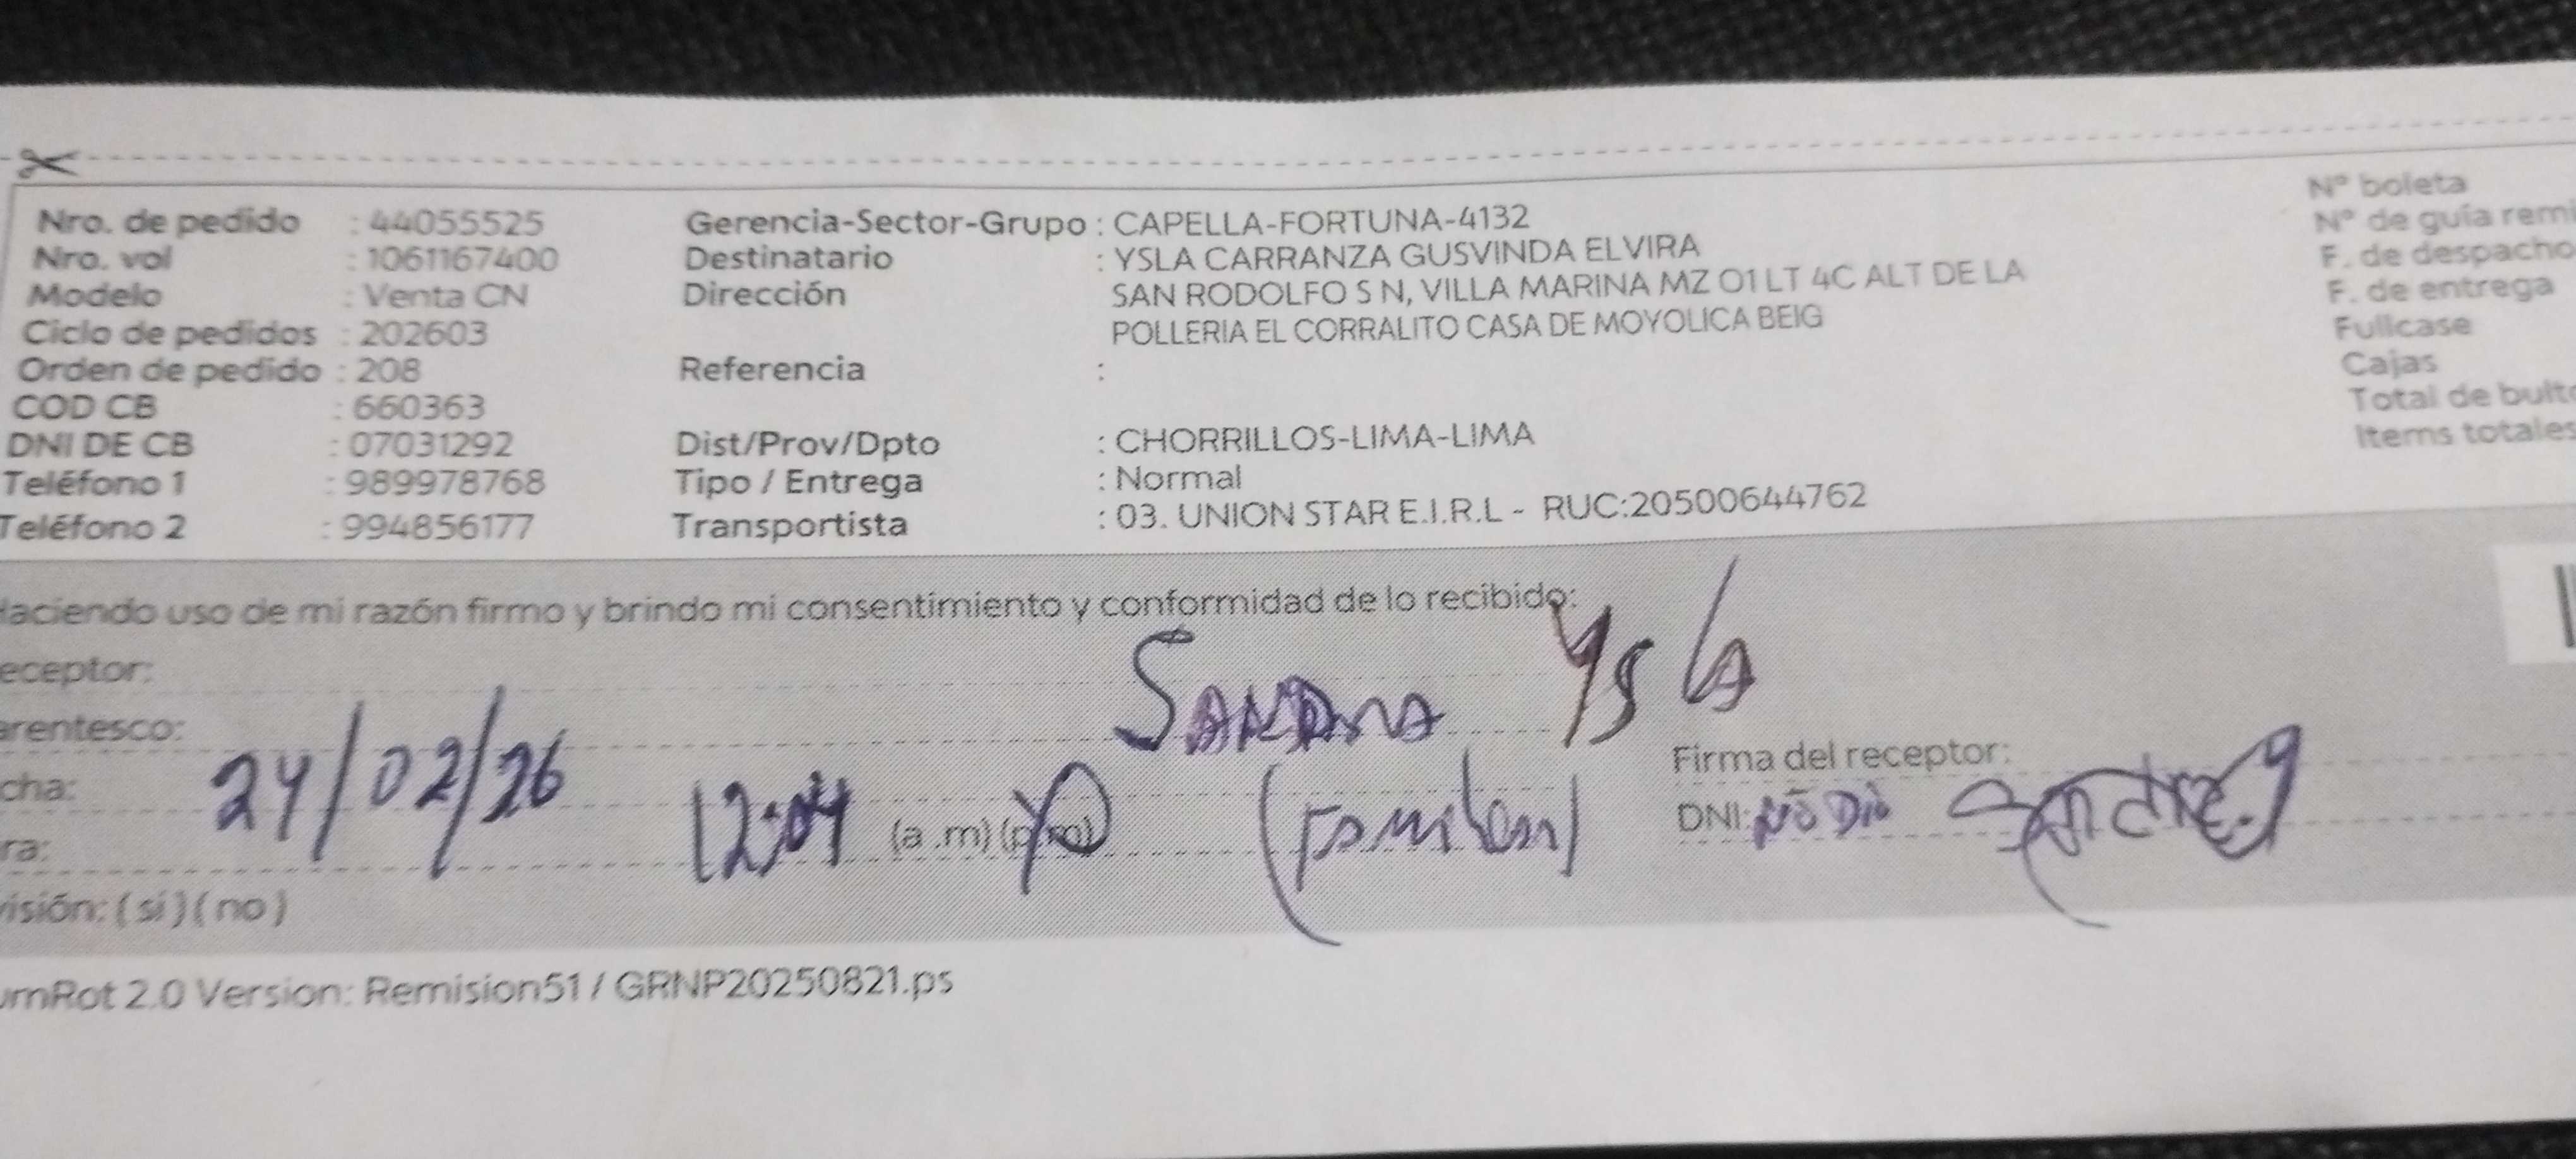 Nro. de pedido : 44055525
Nro. vol : 1061167400
Modelo : Venta CN
Ciclo de pedidos : 202603
Orden de pedido : 208
COD CB : 660363
DNI DE CB : 07031292
Teléfono 1 : 989978768
Teléfono 2 : 994856177
Gerencia-Sector-Grupo : CAPELLA-FORTUNA-4132
Destinatario : YSLA CARRANZA GUSVINDA ELVIRA
Dirección SAN RODOLFO S N, VILLA MARINA MZ O1 LT 4C ALT DE LA
POLLERIA EL CORRALITO CASA DE MOYOLICA BEIG
Referencia :
Dist/Prov/Dpto : CHORRILLOS-LIMA-LIMA
Tipo / Entrega : Normal
Transportista : 03. UNION STAR E.I.R.L - RUC:20500644762
Nº boleta
Nº de guía remi
F. de despacho
F. de entrega
Fullcase
Cajas
Total de bulto
Items totales
Haciendo uso de mi razón firmo y brindo mi consentimiento y conformidad de lo recibido:
eceptor: SANDRA YSLA
arentesco:
cha: 24/02/26
ra: 12:04 (a .m) (p.m)
Firma del receptor:
DNI: NO DIO
visión: ( si ) ( no )
umRot 2.0 Version: Remision51 / GRNP20250821.ps